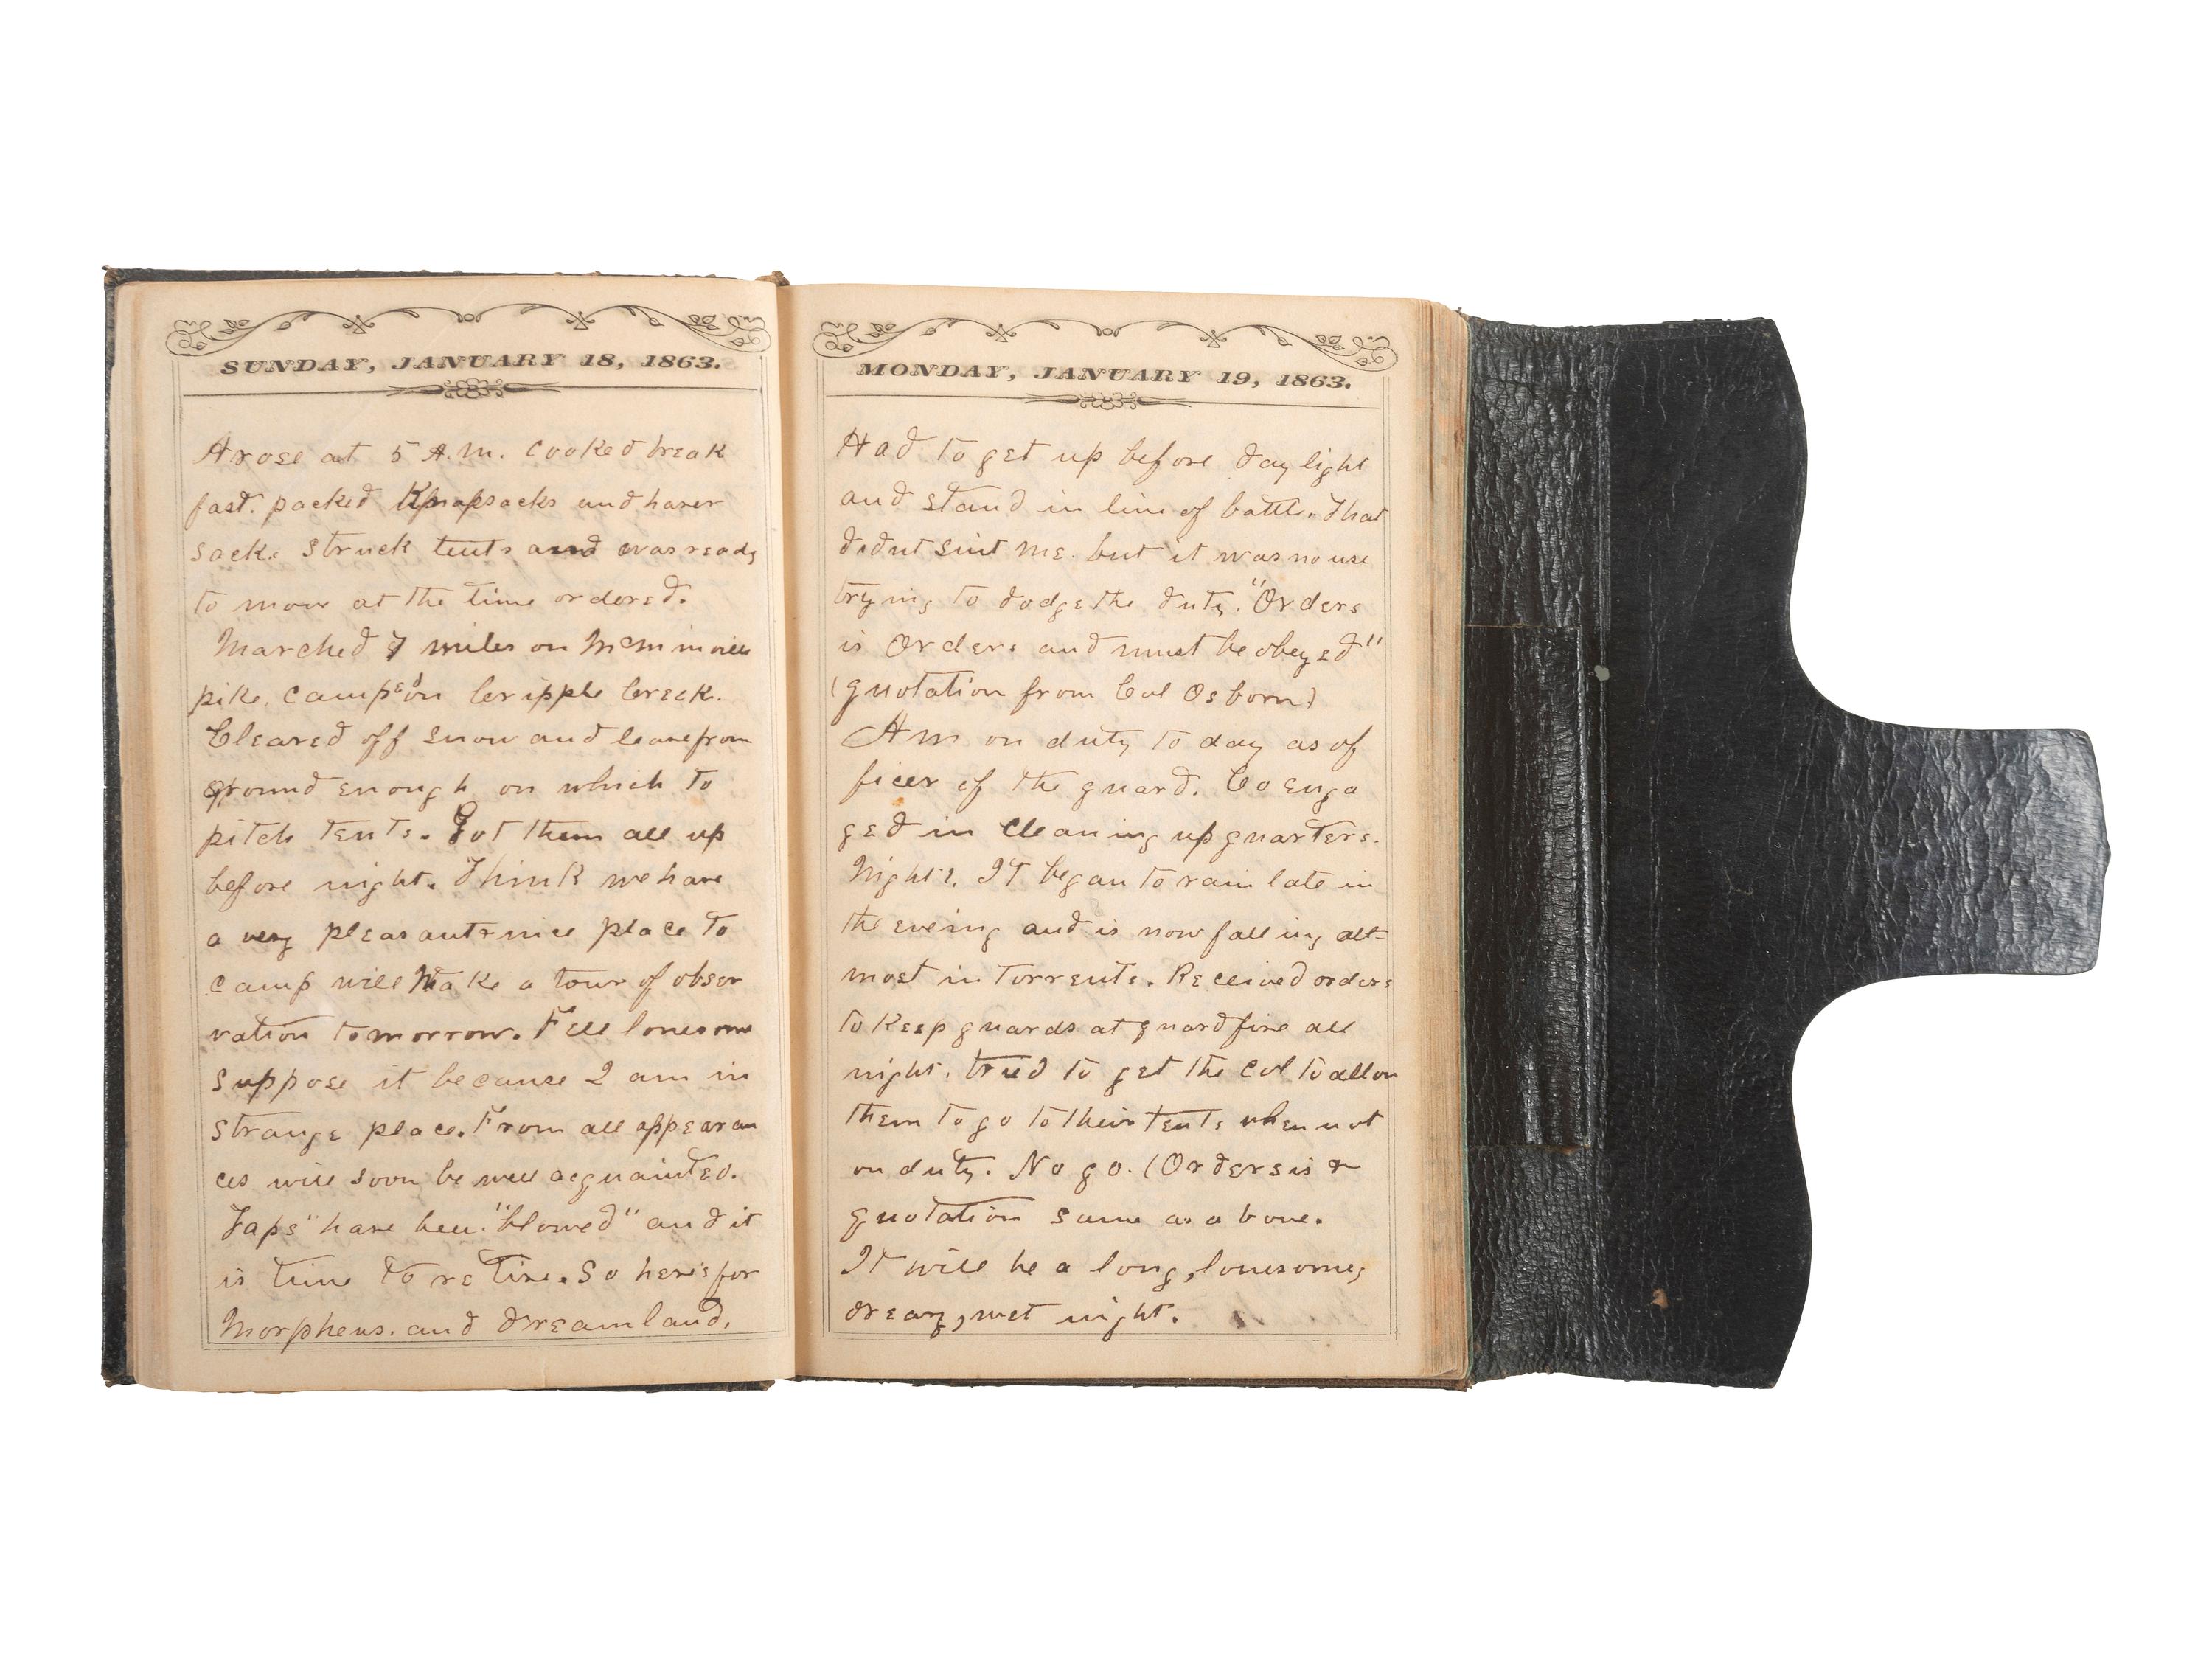 SUNDAY, JANUARY 18, 1863.
Arose at 5 A.M. Cooked break
fast. packed Knapsacks and haver
sacks struck tents and was ready
to move at the time ordered.
Marched 7 miles on McMinnville
pike. camped on Cripple Creek.
Cleared off snow and leaves from
ground enough on which to
pitch tents. Got them all up
before night. Think we have
a very pleasant & nice place to
camp will Make a tour of obser
vation tomorrow. Feel lonesome
suppose it because I am in
strange place. From all appearan
ces will soon be well acquainted.
Taps" have been "blowed" and it
is time to retire. So here's for
Morpheus. and dreamland.
MONDAY, JANUARY 19, 1863.
Had to get up before day light
and stand in line of battle. That
didnt suit me. but it was no use
trying to dodge the duty. "Orders
is Orders and must be obeyed"
(quotation from Col Osborn)
Am on duty to day as of
ficer of the guard. Co enga
ged in cleaning up quarters.
Night. It began to rain late in
the evening and is now falling all=
most in torrents. Received orders
to Keep guards at guard fire all
night. tried to get the Col to allow
them to go to their tents when not
on duty. No go. (Orders is &
quotation same as above.
It will be a long, lonesome,
dreary, wet night.